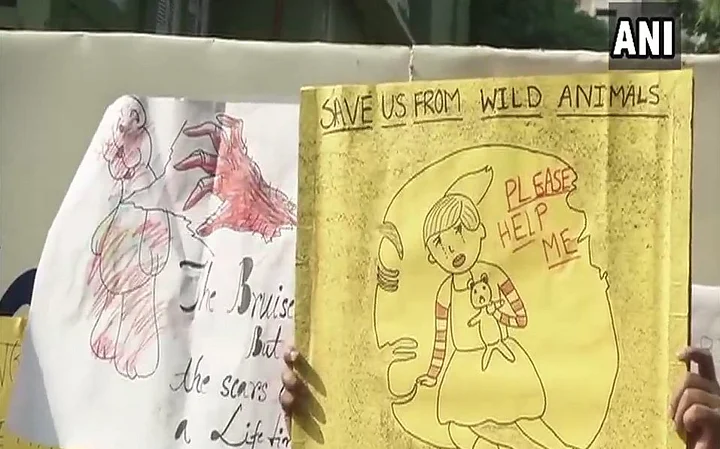 ANI
SAVE US FROM WILD ANIMALS
PLEASE
HELP
ME
The Bruise
But
the scars
a Lifetim